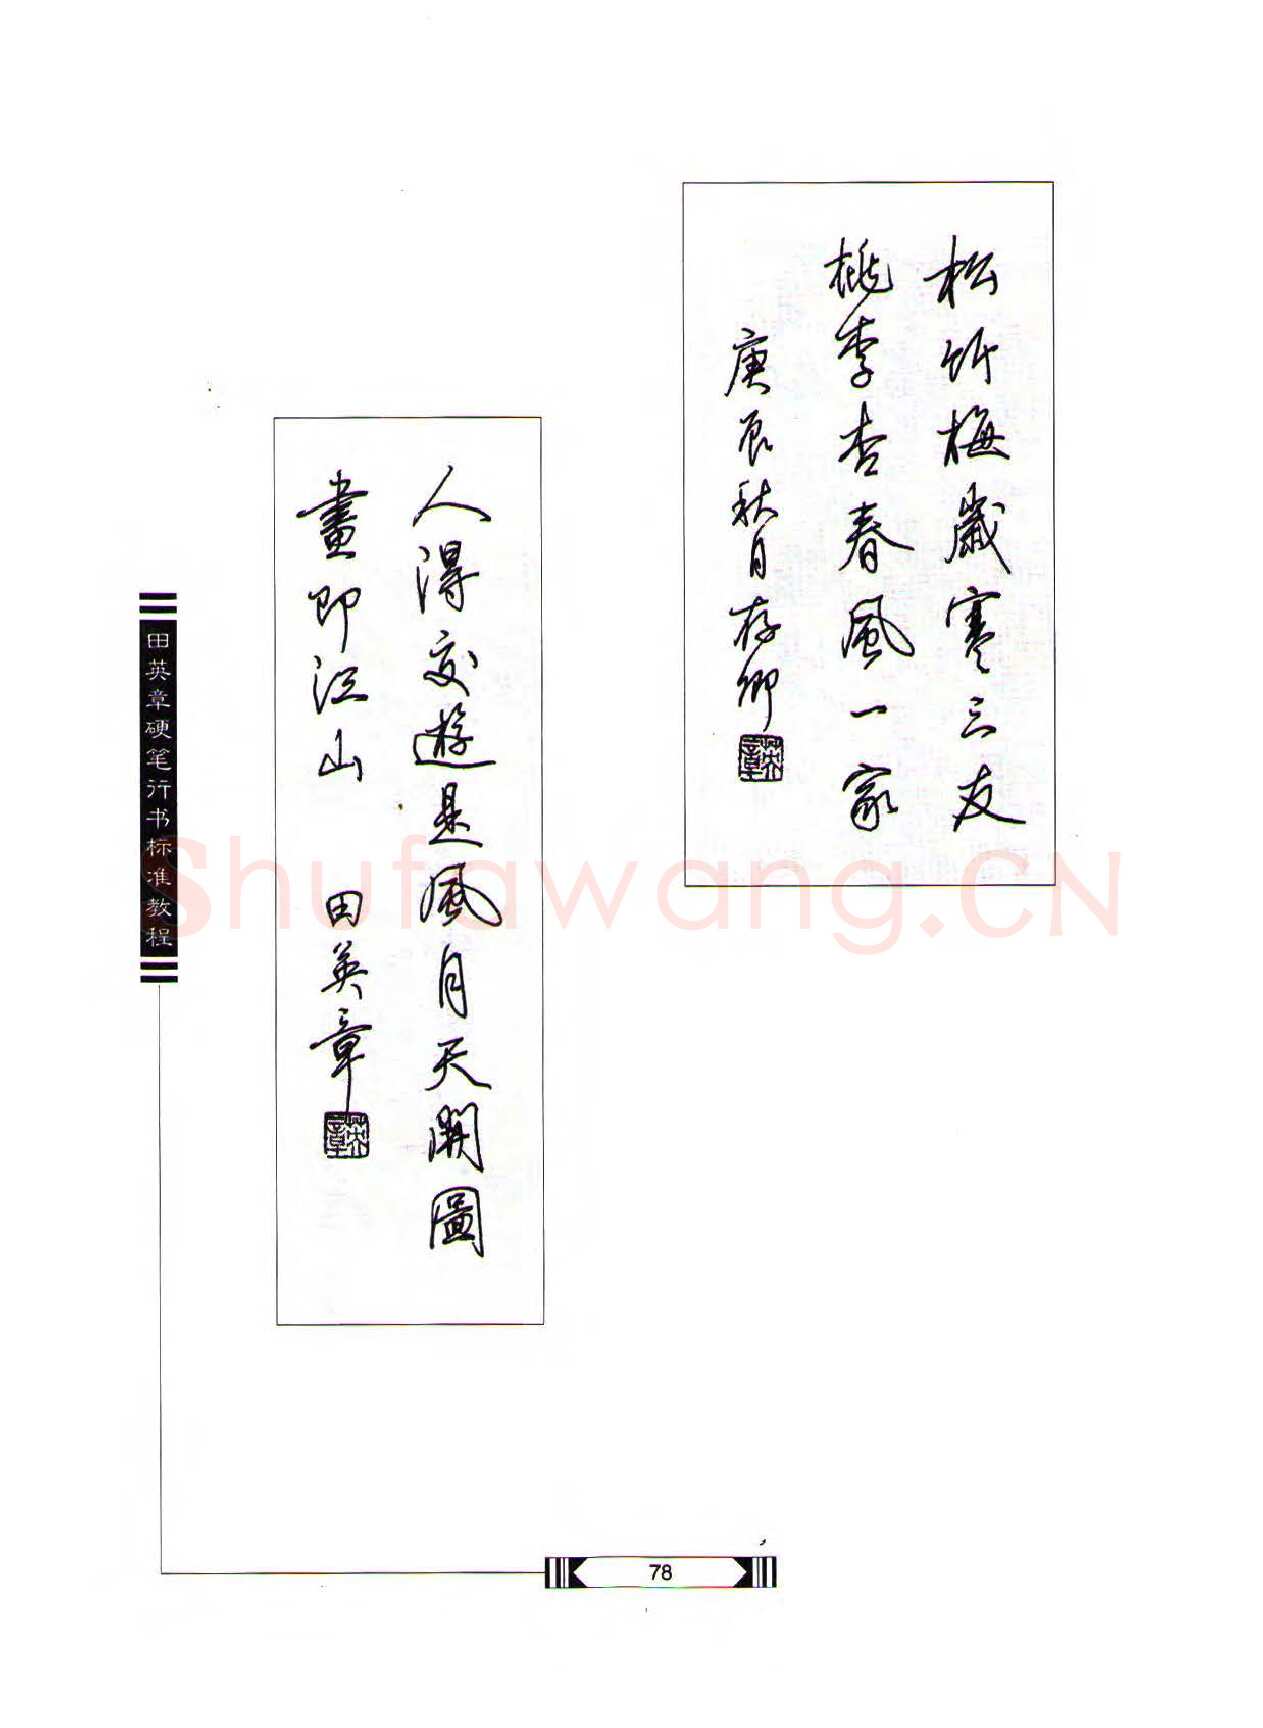 松竹梅歲寒三友
桃李杏春風一家
庚辰秋月存卿
人得交遊是風月天開圖
畫即江山
田英章
田英章硬笔行书标准教程
Shufawang.CN
78